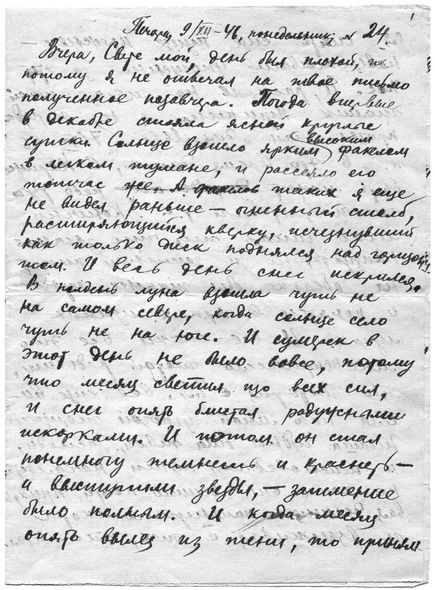 Печора, 9/XII-46, понедельник, № 24.
Вчера, Свет мой, день был плохой, и
потому я не отвечал на твое письмо
полученное позавчера. Погода впервые
в декабре стояла ясной круглые
сутки. Солнце взошло ярким высоким факелом
в легком тумане, и рассеяло его
тотчас же. А факелов таких я еще
не видел раньше — огненный столб,
расширяющийся кверху, исчезнувший
как только диск поднялся над горизон-
том. И весь день снег искрился.
В полдень луна взошла чуть не
на самом севере, когда солнце село
чуть не на юге. И сумерек в
этот день не было вовсе, потому
что месяц светил що всих сил,
и снег опять блистал радужными
искорками. И потом он стал
понемногу темнеть и краснеть —
и выступили звезды, — затмение
было полным. И когда месяц
опять вылез из тени, то принял-